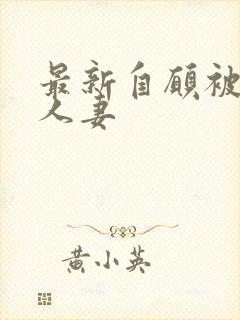 最新自愿被
人妻
黄小英